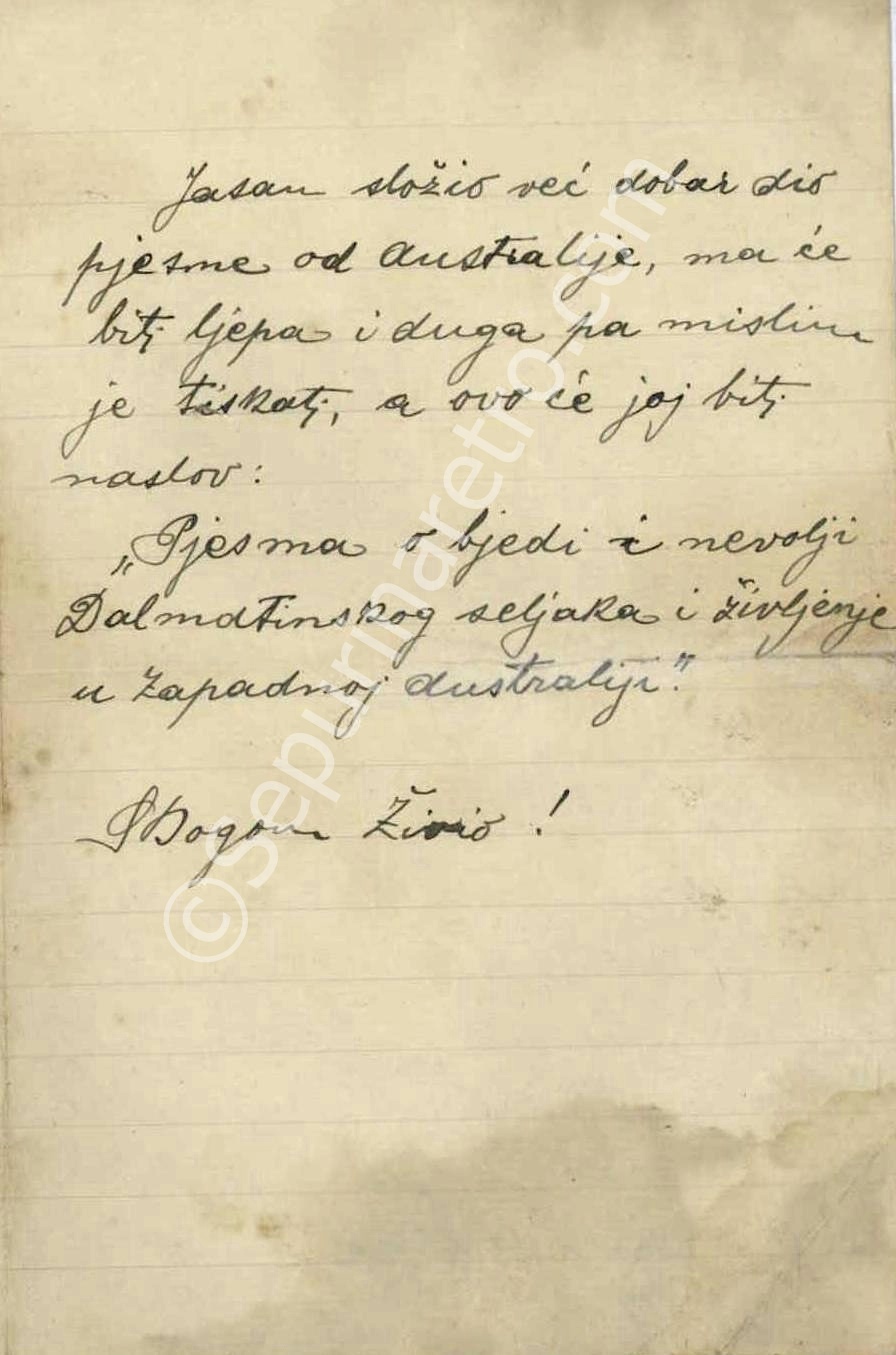 Jasam složio već dobar dio
pjesme od Australije, ma će
biti ljepa i duga pa mislim
je tiskati, a ovo će joj biti
naslov:
„Pjesma o bjedi i nevolji
Dalmatinskog seljaka i življenje
u Zapadnoj Australiji."
S Bogom Živio!
©sepurinaretro.com